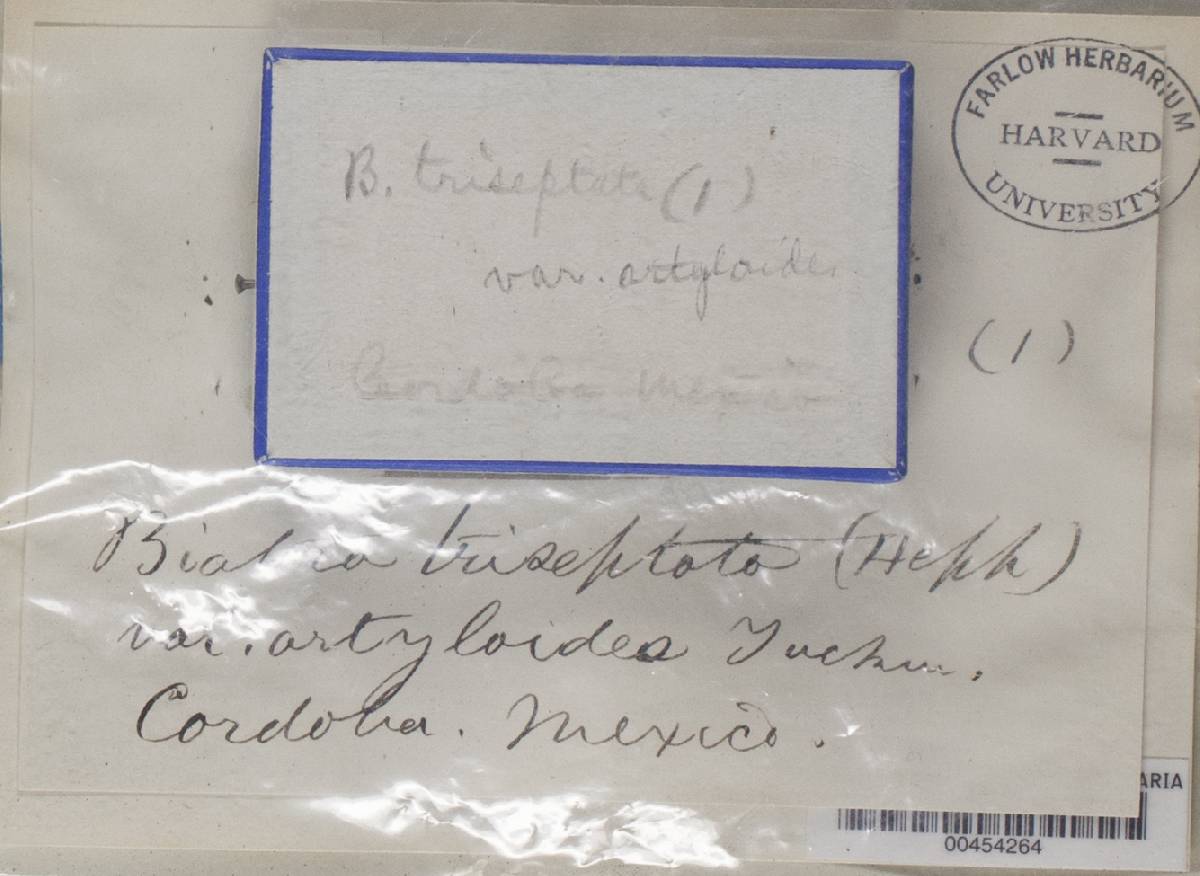 B. triseptata (1)
var. artyloides
Cordoba Mexico
FARLOW HERBARIUM
HARVARD
UNIVERSITY
(1)
Biatora triseptata (Hepp)
var. artyloides Tuckm.
Cordoba. Mexico.
ARIA
00454264